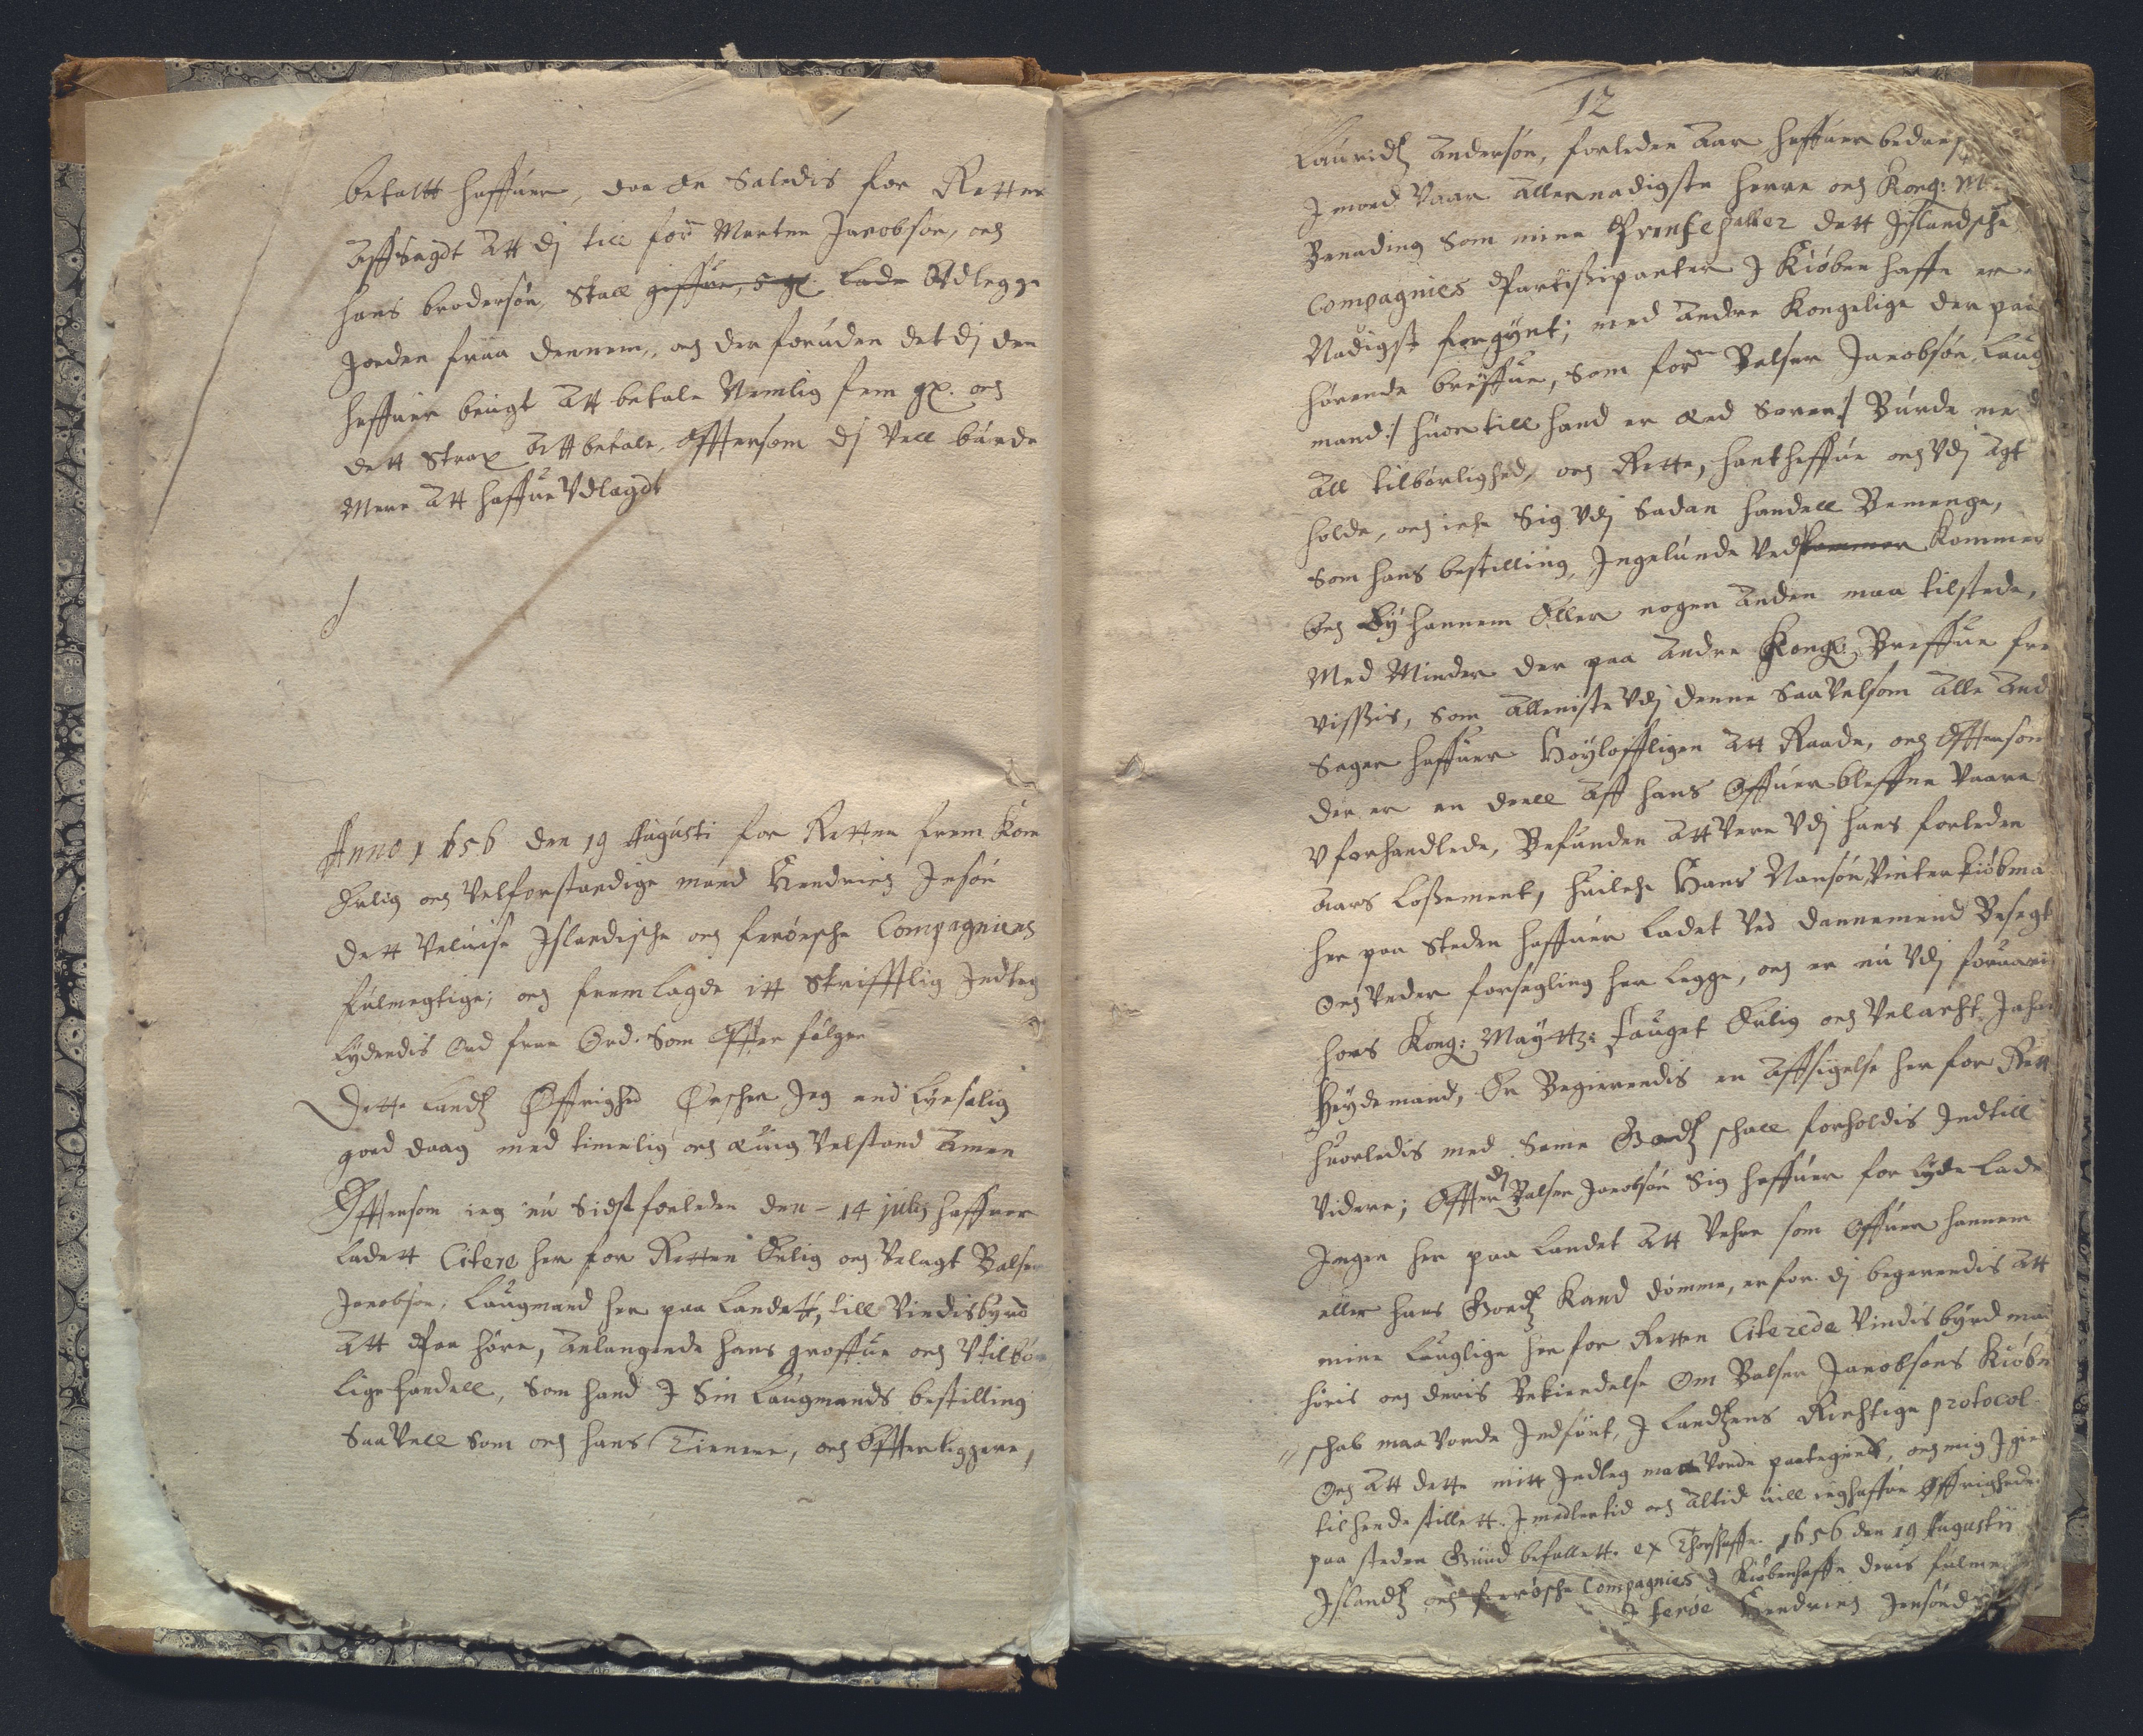 betaltt haffuer, daa er Saledis for Retten
Affsagdt Att dj till forn Morten Jacobsøn, och
hans brodersøn, Skall giffue, 5 gl. lade Vdlegge
Jorden fraa dennem, och der foruden det dj den
haffuer brugt Att betale Nemlig fem gl. och
dett Strax Att betale, Effttersom dj Vell burde
Mere Att haffue Vdlagdt
Anno 1656 den 19 Augusti for Retten frem Kom
Erlig och Velforstandige mand Hendrich Jnsøn
dett Veluise Jslandische och ferøesche Compagniens
fulmegtige; och fremlagde itt Skrifftlig Indleg
lydendis Ord fraa Ord. Som Effter følger
Dette Landtz Øffrighed Ønscher Jeg aid lycksalig
goed daag med timelig och Euig Velstand Amen
Effttersom ieg nu Sidst forleden den - 14 julij haffuer
ladett Citere her for Retten Erlig och Velagt Balser
Jacobsøn, Laugmand her paa Landett, till Vindisbyrd
Att Paa høre, Anlangende hans groffue och Vtilbør
lige handell, Som hand J Sin Laugmands bestilling
Saa Vell Som och hans Tienere, och Effterliggere,
12
Lauridtz Andersøn, forleden Aar haffuer bedreff
J mod Vaar Allernadigste herre och Kong: M:
Benading Som mine Prinsepaller dett Jslandsche
Compagnies Partissipanter J Kiøbenhaffn er
Nadigst forgynt; med Andre Kongelige der paa
hørende breffue, Som forn Balser Jacobsøn, Laug
mand :/ huortill hand er Eed Soren :/ Burde med
All tilbørlighed, och Rette, hanthaffue och Vdj Agt
holde, och iche Sig Vdj Sadan handell Bemenge,
Som hans bestilling, Jngelunde Ved kommer Kommer
Och Ey hannem Eller nogen Anden maa tilstede,
Med Minder der paa Andre Kongl: Breffue fre
vissis, Som Alleniste Vdj denne Saa Velsom Alle And
Sager haffuer Høyløffligen Att Raade, och Effttersom
der er en deell Aff hans Offuerbleffne Vaare
Vforhandlede, Befunden Att Vere Vdj hans forleden
Aars Lossement, huilche Hans Nansøn, Vinter kiøbma
her paa Steden haffuer ladet Ved dannemend Besegt
Och Under forsegling her legge, och er nu Vdj foruari
hoes Kong: Maytts: fauget Erlig och Velacht Joh
Heydemand, Er Begierendis en Affsigelse her for Rett
huorledis med Same Goedtz schall forholdis Jndtill
Videre; Effter dj Balser Jacobsøn Sig haffuer for lyde Lade
Jngen her paa Landet Att Vehre som Offuer hannem
eller hans Goedtz Kand dømme, er for. dj begerendis Att
mine Lauglige her for Retten Citerede Vindisbyrd maa
høris och deris Bekiendelse Om Balser Jacobsøns Kiøbm
schab maa Vorde Jndført, J Landtzens Richtige protocol.
Och Att dette mitt Jndleg maa Vorde paategnet, och mig Jgien
til hende stillett. J medlertid och Altid uill ieg haffue Øffrigheden
paa steden Gud befallett. ex Thorshaffn 1656 den 19 Augustij
Jslandtz och ferrøsche Compagnies J Kiøbenhaffn deris fulme
J ferøe Hendrich Jensøn